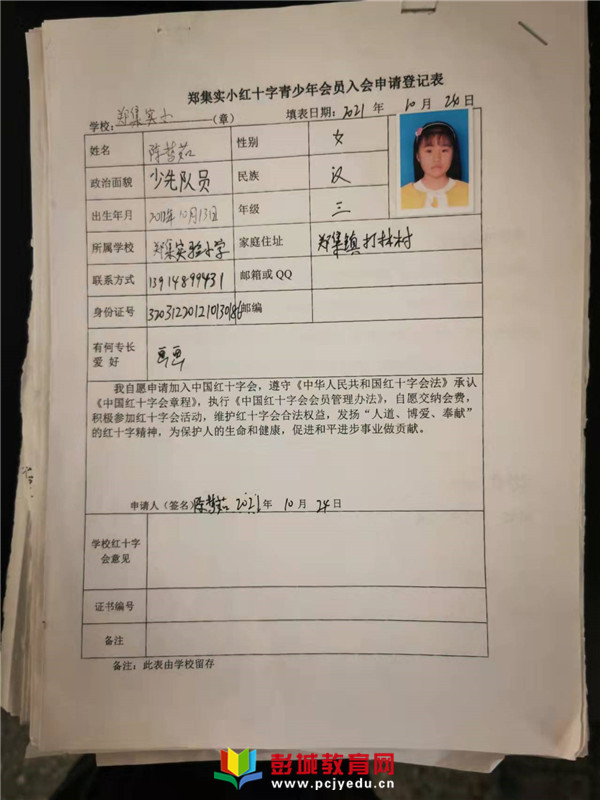 郑集实小红十字青少年会员入会申请登记表
学校：郑集实小（章） 填表日期：2021 年 10 月 24 日
姓名 性别 女
政治面貌 少先队员 民族 汉
出生年月 10月13日 年级 三
所属学校 郑集实验小学 家庭住址 郑集镇
联系方式 13914899431 邮箱或 QQ
身份证号 320312201210130186 邮编
有何专长
爱 好 画画
我自愿申请加入中国红十字会，遵守《中华人民共和国红十字会法》承认
《中国红十字会章程》，执行《中国红十字会会员管理办法》，自愿交纳会费，
积极参加红十字会活动，维护红十字会合法权益，发扬“人道、博爱、奉献”
的红十字精神，为保护人的生命和健康，促进和平进步事业做贡献。
申请人（签名） 2021 年 10 月 24 日
学校红十字
会意见
证书编号
备注
备注：此表由学校留存
彭城教育网
www.pcjyedu.cn